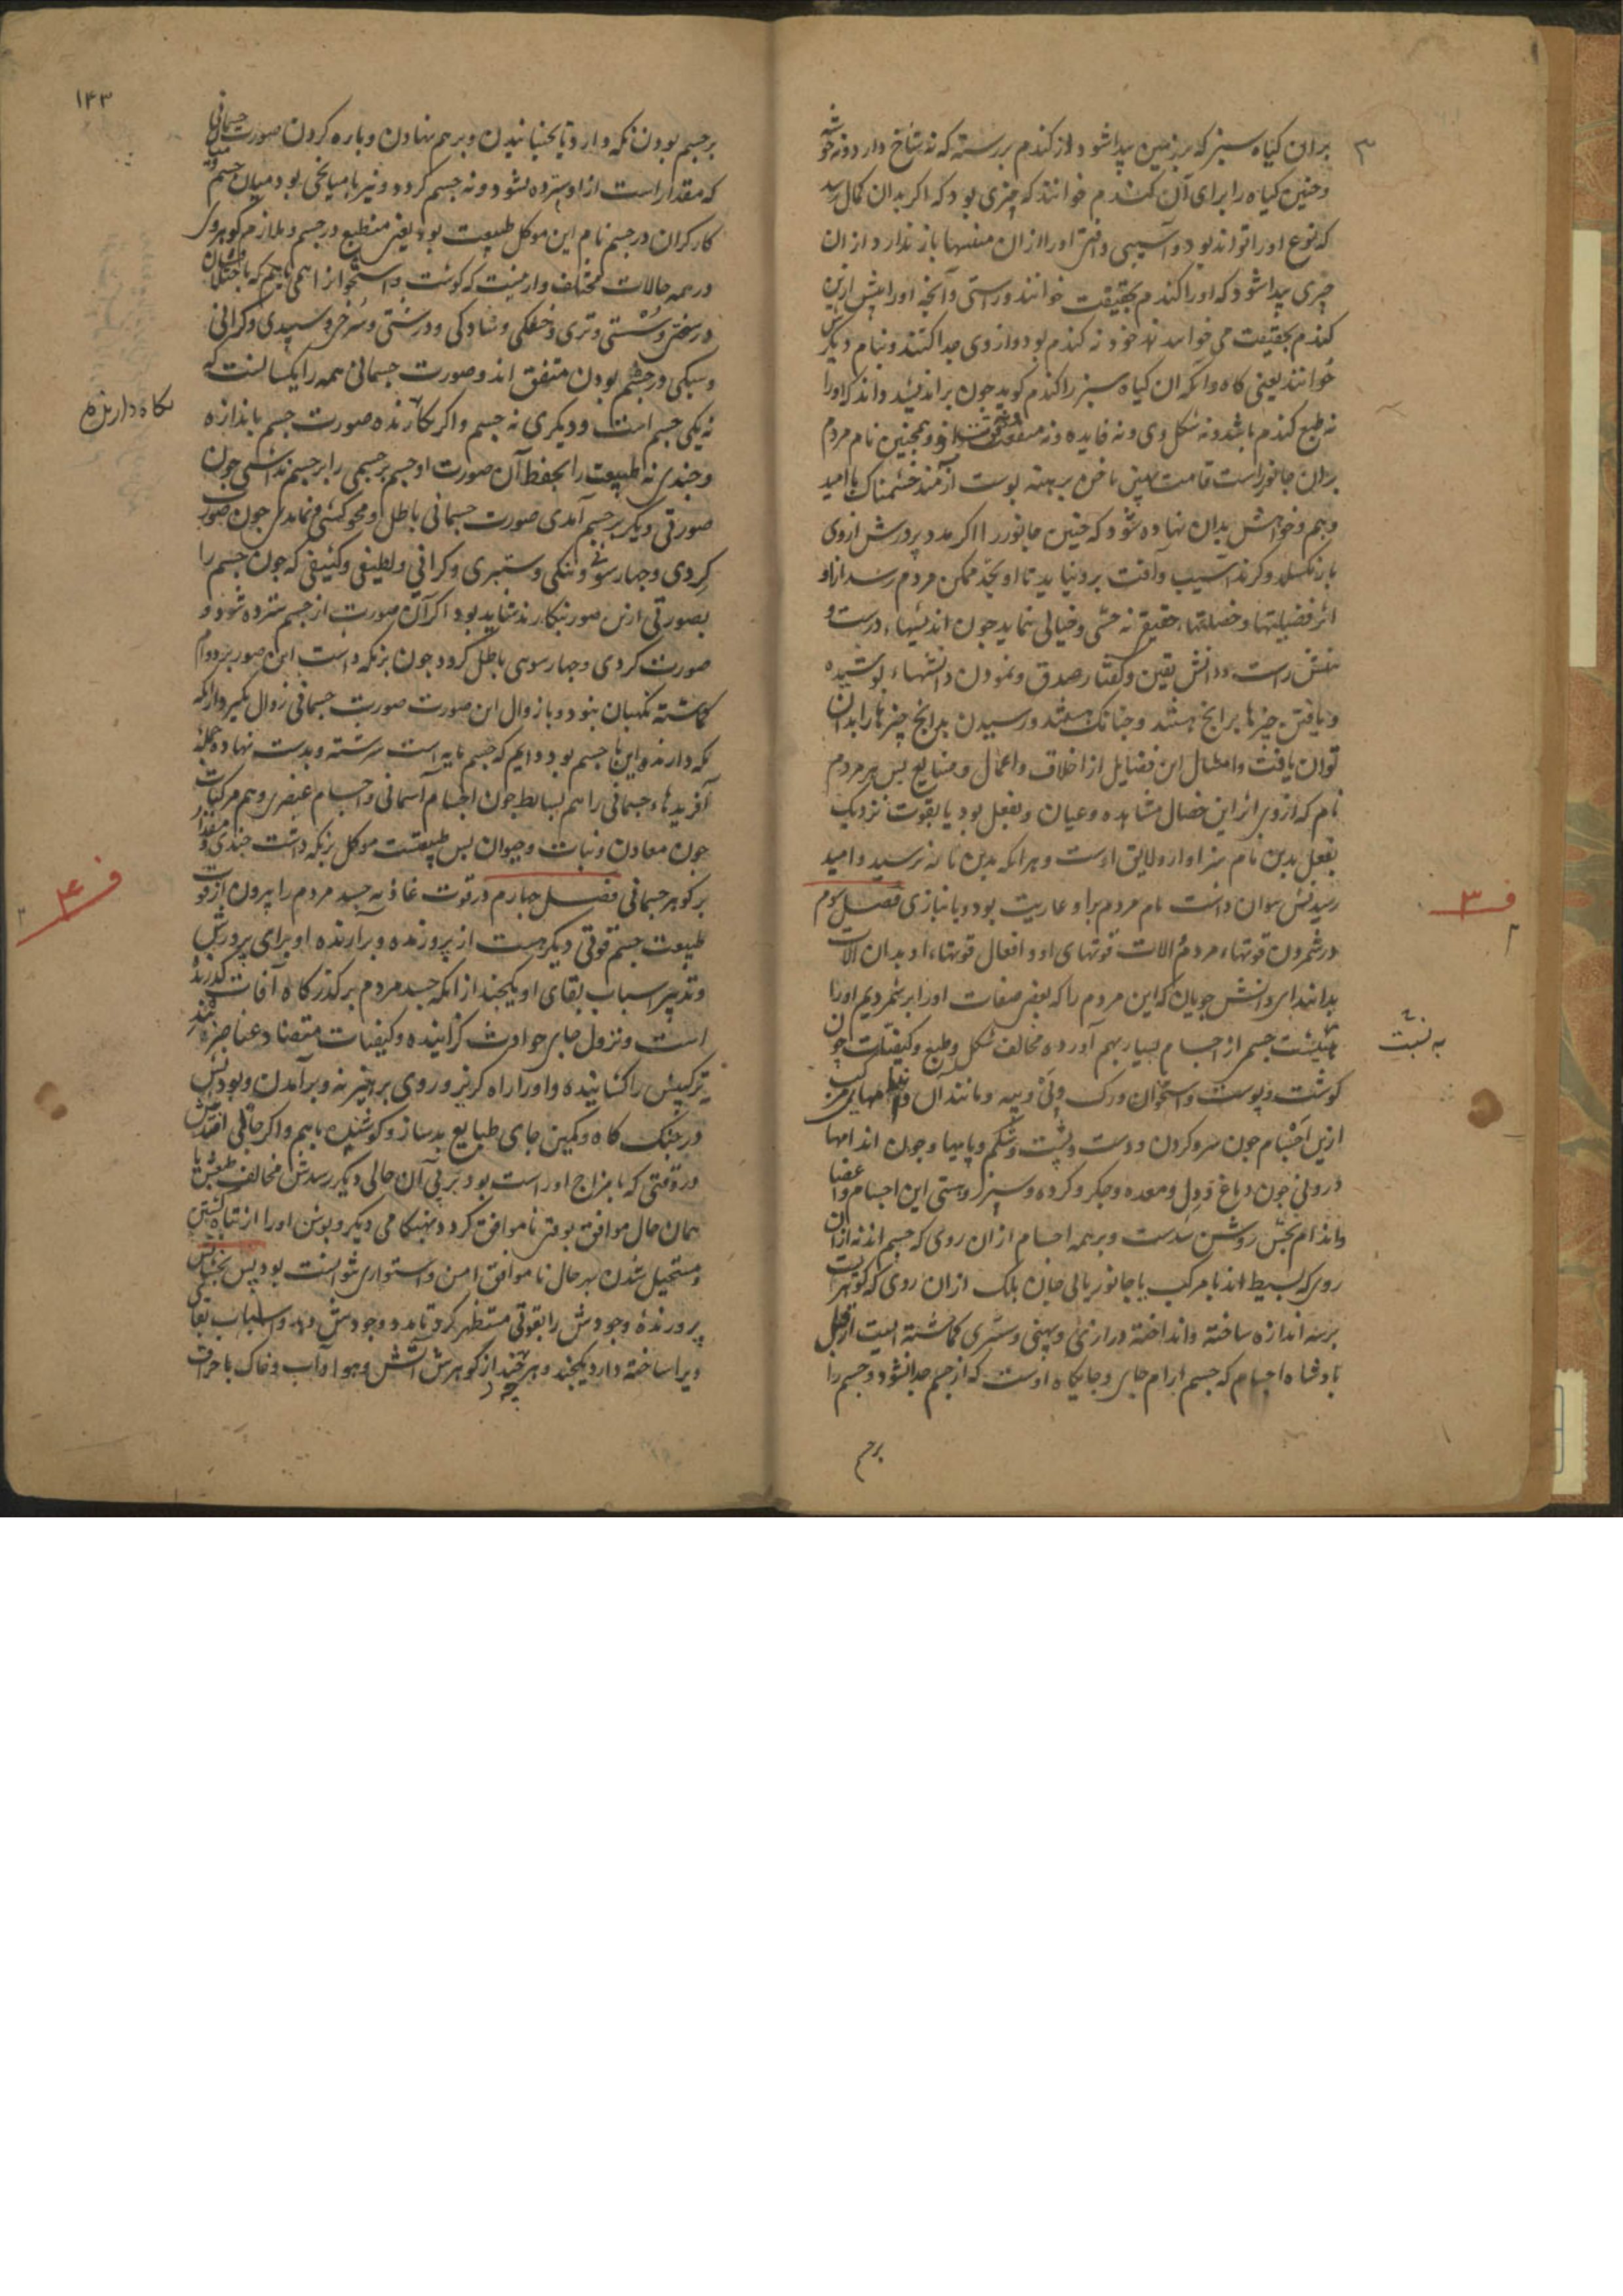 ۳
بران کیاه سبز که بر زمین پیدا شود از کندم بررسته که نه شاخ دارد و نه خوشه
و چنین کیاه را برای آن کندم خوانند که چیزی بود که اکر بدان کمال رسد
که نوع او را تواند بود و آسیبی و آفتی او را ازان منتها باز ندارد از ان
چیزی پیدا شود که او را کندم بحقیقت خوانند و راستی و آنچه او را پیش ازین
کندم بحقیقت می خوانند نه خود نه کندم بود و از وی جدا کنند و بنام دیکرش
خوانند یعنی کاه و آنکه ان کیاه سبز را کندم کوید چون براندیشد داند که او را
نه طبع کندم باشد و نه شکل وی و نه فایده و نه منفعت و همچنین نام مردم
بران جانور راست قامت پهن ناخن برهنه پوست آزمند خشمناک با امید
و بیم و خواهش بدان نهاده شود که چنین جانور را اکر مدد پرورش از وی
باز نکسلد و کزند آسیب و آفت برو نیاید تا او بحد ممکن مردم رسد از او
اثر فضیلتها و خصلتها، حقیقی نه حسی و خیالی نماید چون اندیشها، درست و
منش راست و دانش یقین و کفتار صدق و نمودن دانشها، پوشیده
و یافتن چیزها برانچ هستند و چنانک هستند و رسیدن بدانچ چیزها را بدان
توان یافت و امثال این فضایل از اخلاق و اعمال و صنایع پس هر مردم
نام که ازو بر اثر این خصال مشاهده و عیان و بفعل بود یا بقوت نزدیک
بفعل بدین نام سزاوار و لایق اوست و هر انکه بدین نام نرسید و امید
رسیدنش نتوان داشت نام مردم برو عاریت بود و بانبازی فصل سوم
در شمردن قوتهاء مردم و الات قوتهای او و افعال قوتهاء او بدان الات
بدانید ای دانش جویان که این مردم را که بعضی صفات او را برشمردیم او را
هیئتست جسم از اجسام بسیار بهم آورده مخالف شکل و طبع و کیفیات چون
کوشت و پوست و استخوان و رک و پی و پیه و مانند آن و اندامهای مرکب
ازین اجسام چون سر و کردن و دست و پشت و شکم و پایها و چون اندامها
درونی چون دماغ و دل و معده و جکر و کرده و سپرز و هستی این اجسام و اعضا
و اندام بحس روشن شدست و بر همه اجسام ازان روی که جسم اند نه ازان
روی که بسیط اند یا مرکب با جانور یا بی جان بلک ازان روی که کوهریست
بر سه اندازه ساخته و انداخته درازی و پهنی و ستبری کماشته ایست از قبل
پادشاه اجسام که جسم آرام جای و جایکاه اوست که از جسم جدا نشود و جسم را
برجسم
ف ۳
به نسبت
۱۴۳
برجسم بودن نکه دارد تا بجنبانیدن و برهم نهادن و پاره کردن صورت جسمانی
که مقدار است از او سترده نشود و نه جسم کردد و نیز با میانجی بود میان جسم و
کارکران در جسم نام این موکل طبیعت بود یعنی منطبع در جسم و ملازم کوهر وی
در همه حالات مختلف و ازینست که کوشت و استخوان را همی یابیم که با اختلاف
در سختی و سستی و تری و خشکی و سادکی و درشتی و سرخی و سپیدی و کرانی
و سبکی در جسم بودن متفق اند و صورت جسمانی همه را یکسانست که
نه یکی جسم است و دیکری نه جسم و اکر نکارنده صورت جسم باندازه
و چندی نه طبیعت را بحفظ آن صورت او جسم بر جسمی را بر جسم نداشتی چون
صورتی دیکر بر جسم آمدی صورت جسمانی باطل و محو کشتی و نماندی چون صورت
کردی و چهارسوئی و تنکی و ستبری و کرانی و لطیفی و کثیفی که چون جسم را
بصورتی ازین صور نکارند شاید بود اکر آن صورت از جسم سترده شود و
صورت کردی و چهارسوئی باطل کردد چون بر نکه داشت این صور بر دوام
کماشته نکهبان نبود و با زوال این صورت صورت جسمانی زوال نکیرد از انکه
نکه دارنده این ها جسم بود دایم که جسم مایه است سرشته و بدست نهاده جمله
آفریدها، جسمانی را هم بسایط چون اجسام آسمانی و اجسام عنصری و هم مرکبات
چون معادن و نبات و حیوان پس طبیعتست موکل بر نکه داشت چندی و مقدار
بر کوهر جسمانی فصل چهارم در قوت غاذیه جسد مردم را بیرون از قوت
طبیعت جسم قوتی دیکر هست از پروزنده و برآرنده او برای پرورش
و تدبیر اسباب بقای او یکچند از انکه جسد مردم بر کذرکاه آفات کذرنده
است و نزول جای حوادث کزاینده و کیفیات متضاد عناصر
ترکیبش را کشاینده و او را راه کریز و روی پرهیز نه و برآمدن و بودنش
در جنک کاه و کمین جای طبایع بدساز و کوشنده با هم و اکر حالی افتدش
در وقتی که با مزاج او راست بود بر پی آن حالی دیکر رسدش مخالف طبعش و یا
همان حال موافق بوقتی ناموافق کردد بهنکامی دیکر و بودن او را از تباه کشتن
و مستحیل شدن بهر حال ناموافق امن و استواری نتوانست بود پس بخشایش
پرورنده وجودش را بقوتی مستظهر کرد تا مدد وجودش دهد و اسباب بقا
ویرا ساخته دارد یکچند و هر چند از کوهرش آتش و هوا و آب و خاک با حرارت
نکاه دارنده
ف ۴